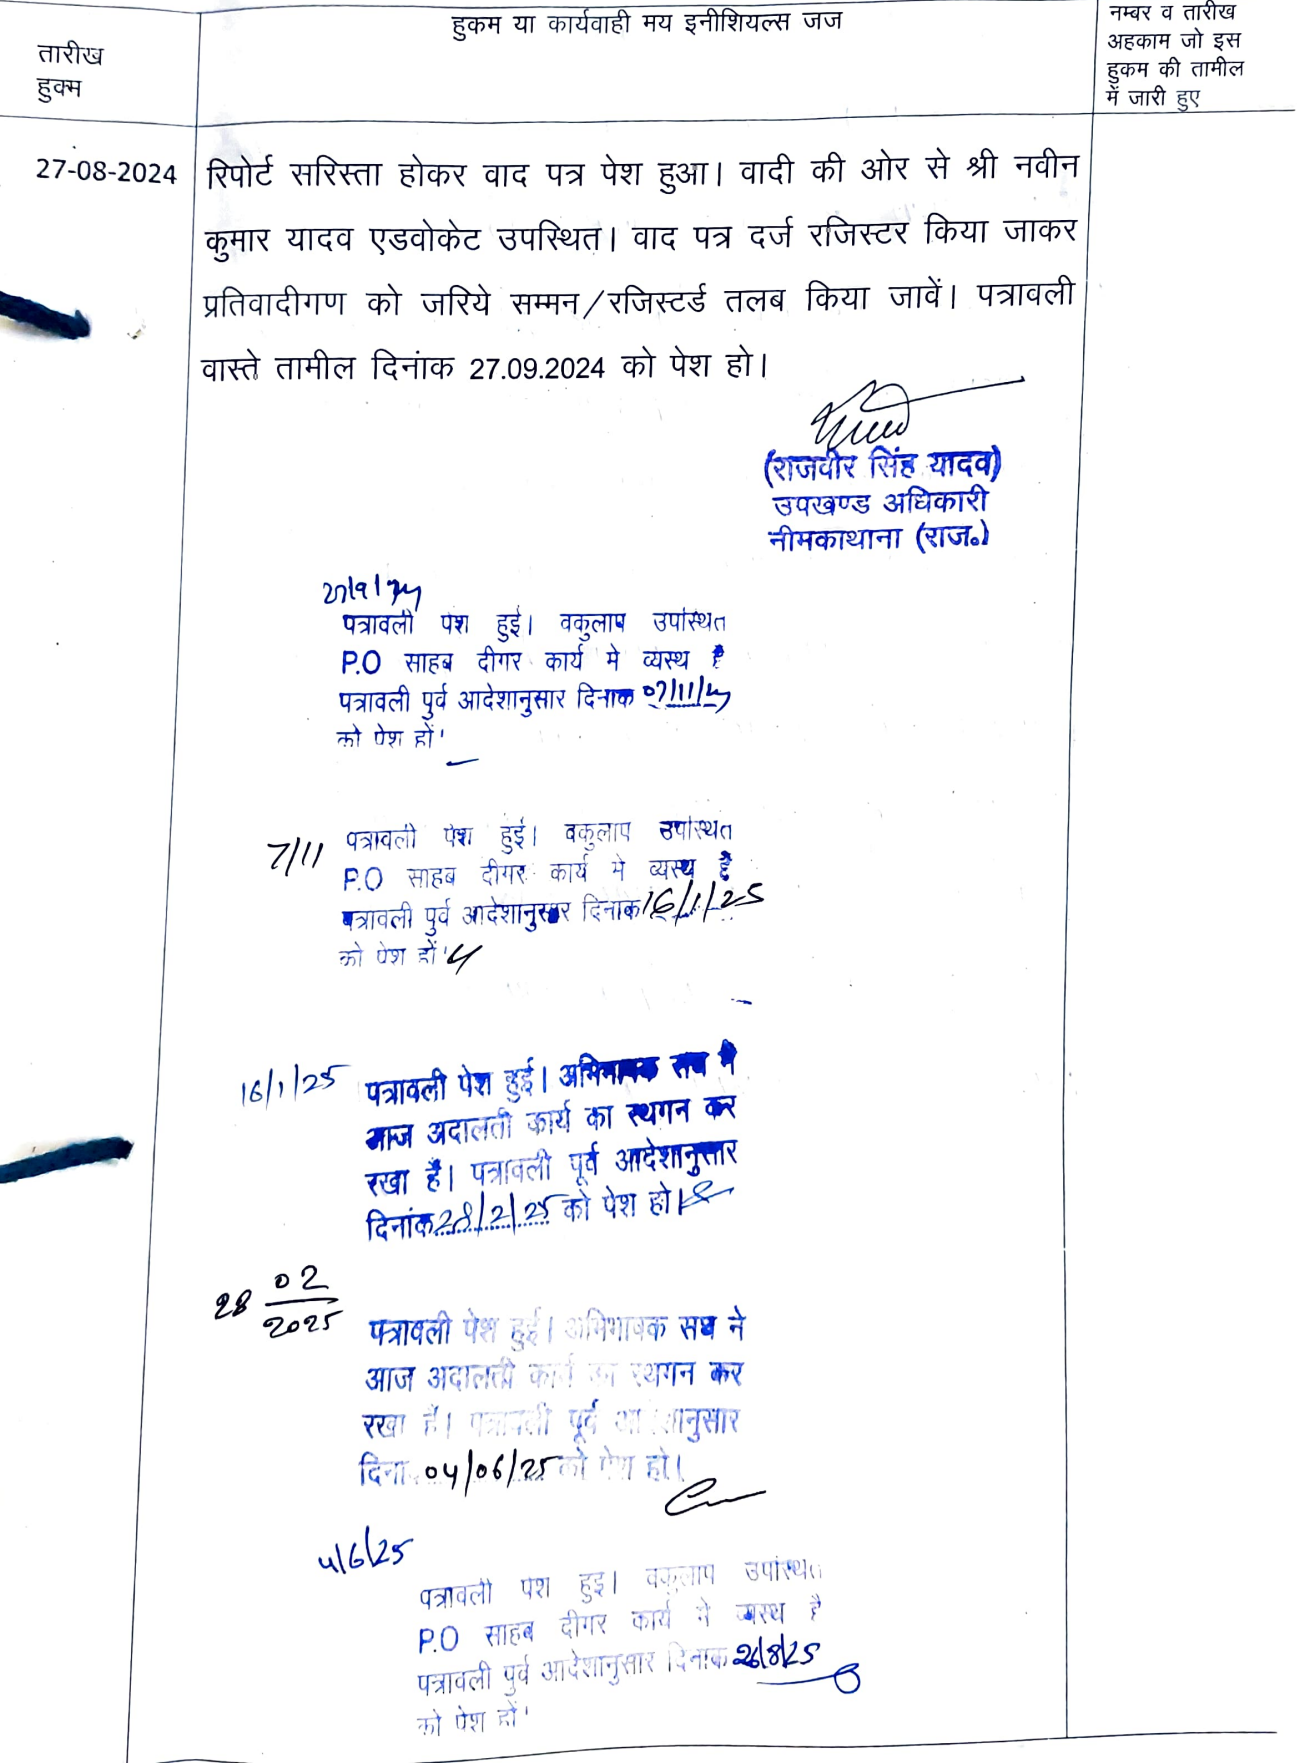 तारीख
हुक्म
हुकम या कार्यवाही मय इनीशियल्स जज
नम्बर व तारीख
अहकाम जो इस
हुकम की तामील
में जारी हुए
27-08-2024
रिपोर्ट सरिस्ता होकर वाद पत्र पेश हुआ। वादी की ओर से श्री नवीन
कुमार यादव एडवोकेट उपस्थित। वाद पत्र दर्ज रजिस्टर किया जाकर
प्रतिवादीगण को जरिये सम्मन/रजिस्टर्ड तलब किया जावें। पत्रावली
वास्ते तामील दिनांक 27.09.2024 को पेश हो।
(राजवीर सिंह यादव)
उपखण्ड अधिकारी
नीमकाथाना (राज०)
पत्रावली पेश हुई। वकुलाप उपस्थित
P.O साहब दीगर कार्य मे व्यस्थ है
पत्रावली पुर्व आदेशानुसार दिनाक
को पेश हों'
7/11
पत्रावली पेश हुई। वकुलाप उपस्थित
P.O साहब दीगर कार्य मे व्यस्थ है
पत्रावली पुर्व आदेशानुसार दिनाक 16/1/25
को पेश हों'
16/1/25
पत्रावली पेश हुई। अभिभावक सघ ने
आज अदालती कार्य का स्थगन कर
रखा है। पत्रावली पूर्व आदेशानुसार
दिनांक 28/2/25 को पेश हो।
28 02/2025
पत्रावली पेश हुई। अभिभावक सघ ने
आज अदालती कार्य का स्थगन कर
रखा है। पत्रावली पूर्व आदेशानुसार
दिना 04/06/25 को पेश हो।
4/6/25
पत्रावली पेश हुइ। वकुलाप उपस्थित
P.O साहब दीगर कार्य मे व्यस्थ है
पत्रावली पुर्व आदेशानुसार दिनाक 26/8/25
को पेश हों'